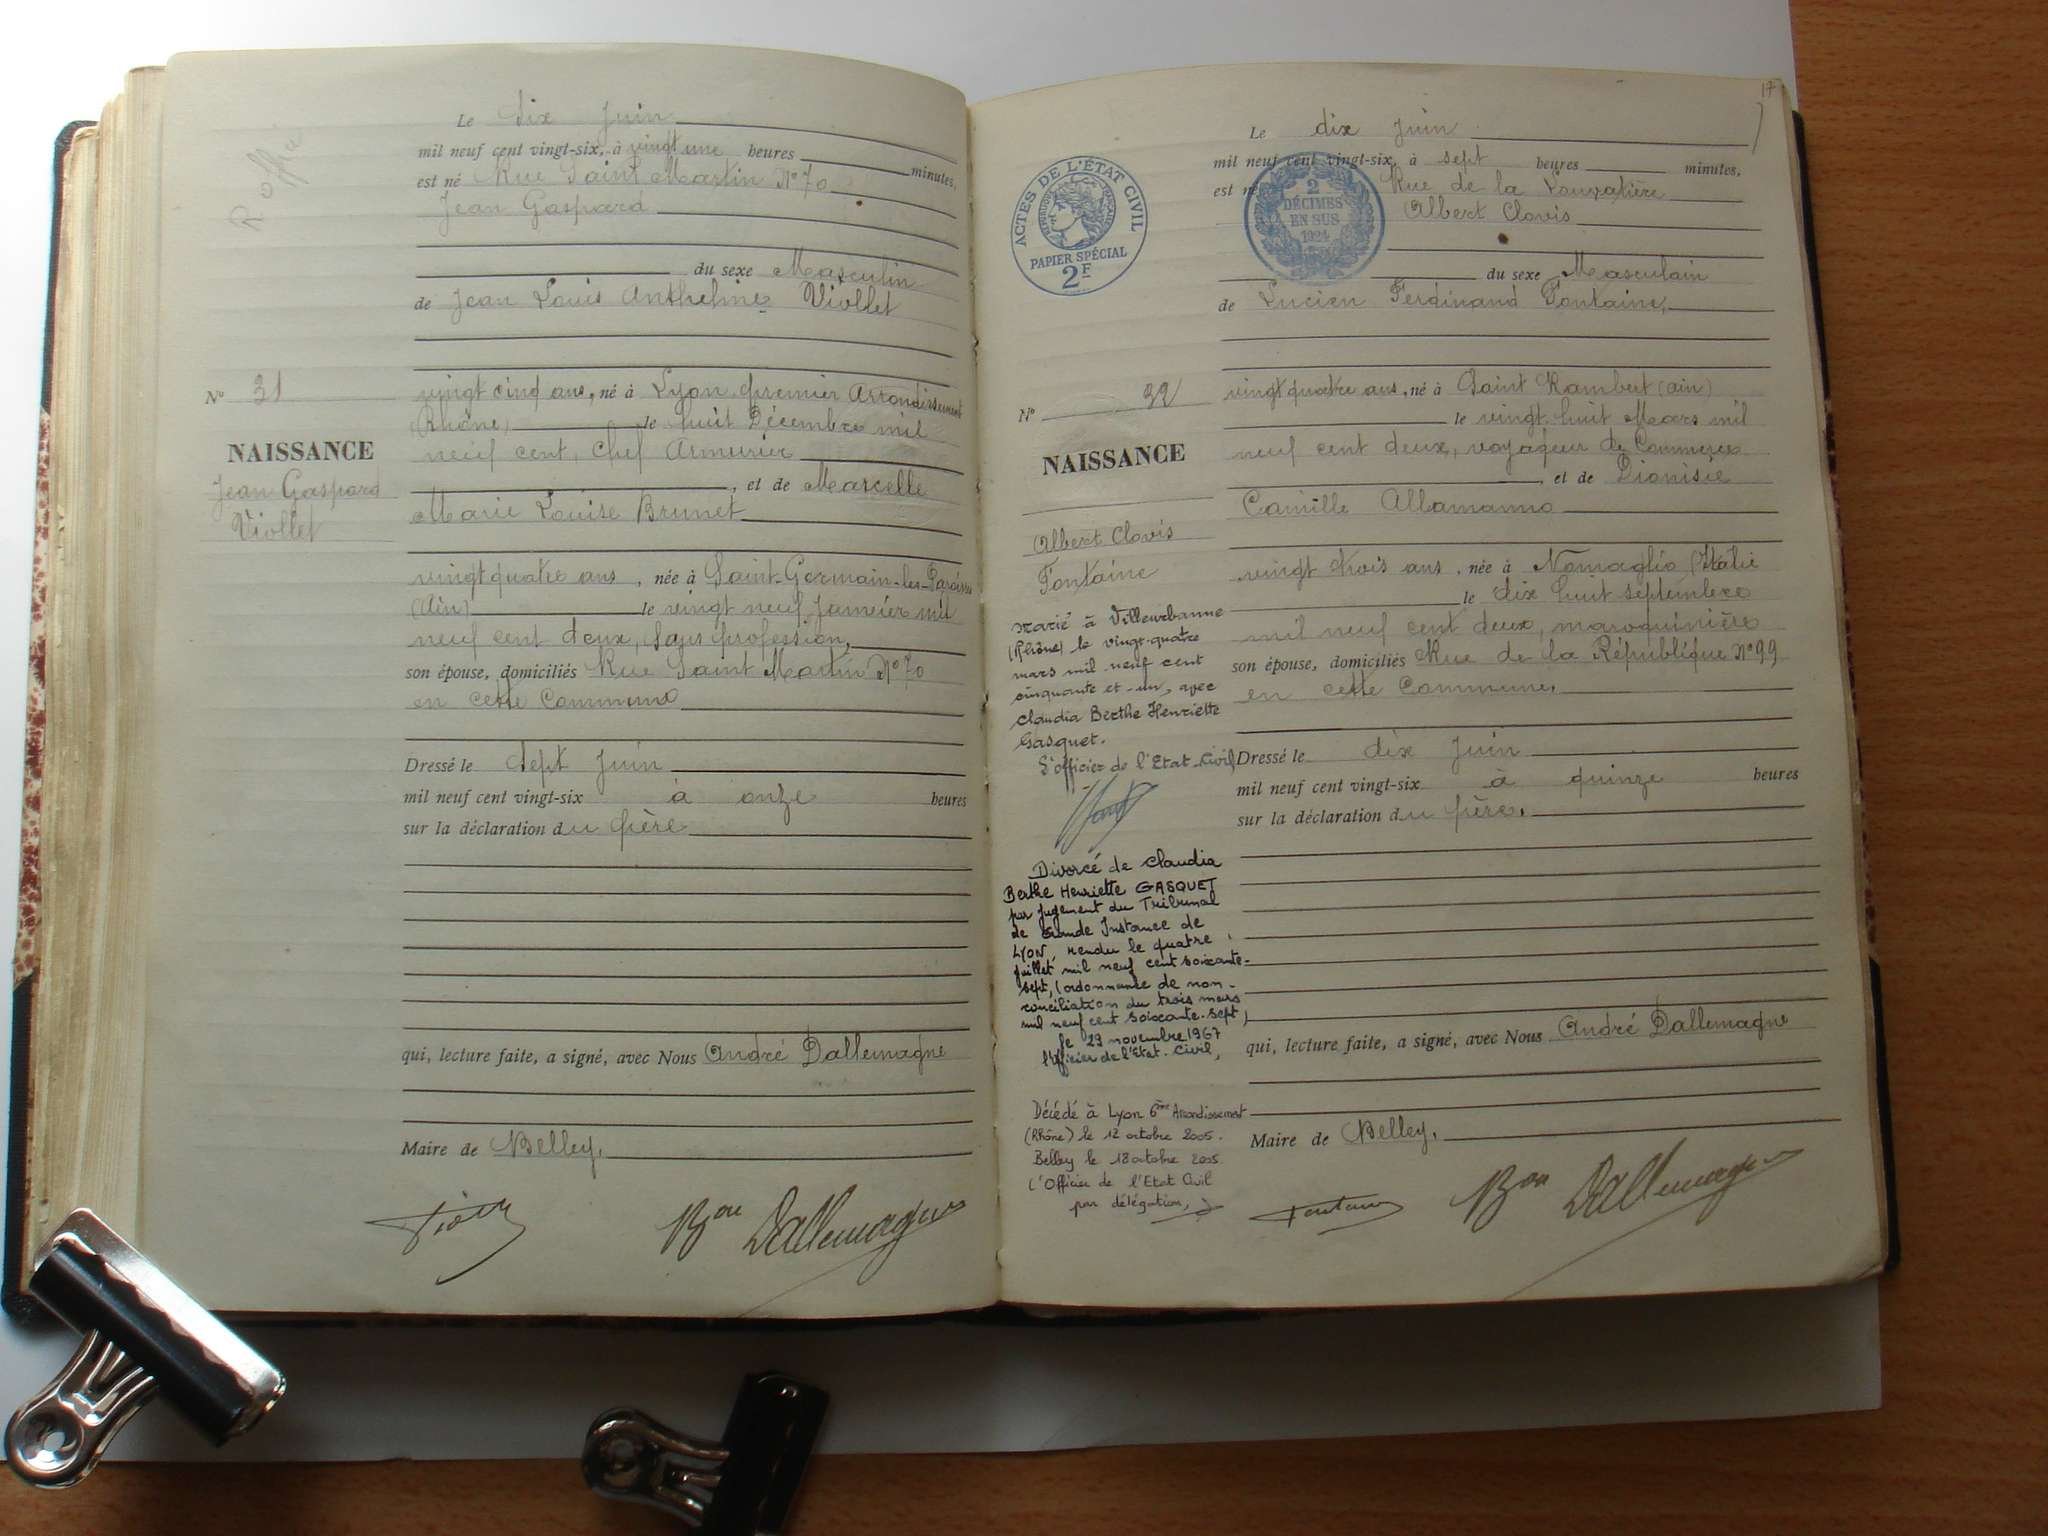 Le dix Juin
mil neuf cent vingt-six, à vingt une heures minutes,
est né Rue Saint Martin N° 70
Jean Gaspard
du sexe Masculin
de Jean Louis Anthelme Viollet
N° 31
vingt cinq ans, né à Lyon premier Arrondissement
(Rhône) le huit Décembre mil
neuf cent, Chef Armurier
NAISSANCE
Jean Gaspard
Viollet
, et de Marcelle
Marie Louise Brunet
vingt quatre ans, née à Saint-Germain-les-Paroisses
(Ain) le vingt neuf Janvier mil
neuf cent deux, sans profession,
son épouse, domiciliés Rue Saint Martin N° 70
en cette Commune
Dressé le sept Juin
mil neuf cent vingt-six à onze heures
sur la déclaration du père
qui, lecture faite, a signé, avec Nous André Dallemagne
Maire de Belley.
Bon Dallemagne
17
Le dix Juin
mil neuf cent vingt-six, à sept heures minutes,
est né Rue de la
Albert Clovis
ACTES DE L'ÉTAT CIVIL
PAPIER SPÉCIAL
2F
2
DÉCIMES
EN SUS
1924
du sexe Masculin
de Lucien Ferdinand Fontaine,
N° 32
vingt quatre ans, né à Saint Rambert (Ain)
le vingt huit Mars mil
neuf cent deux, voyageur de Commerce
NAISSANCE
Albert Clovis
Fontaine
, et de Dionisie
Camille Allamanno
vingt trois ans, née à Nomaglio (Italie
le dix huit septembre
mil neuf cent deux, maroquinière
son épouse, domiciliés Rue de la République N° 99
en cette Commune.
Dressé le dix Juin
mil neuf cent vingt-six à quinze heures
sur la déclaration du père.
qui, lecture faite, a signé, avec Nous André Dallemagne
Maire de Belley.
Fontaine Bon Dallemagne
Marié à Villeurbanne
(Rhône) le vingt-quatre
mars mil neuf cent
cinquante et-un, avec
Claudia Berthe Henriette
Gasquet.
L'officier de l'Etat-Civil
Divorcé de Claudia
Berthe Henriette GASQUET
par jugement du Tribunal
de Grande Instance de
LYON, rendu le quatre
juillet mil neuf cent soixante-
sept, (ordonnance de non-
conciliation du trois mars
mil neuf cent soixante-sept)
le 29 novembre 1967
l'Officier de l'Etat-Civil,
Décédé à Lyon 6ème Arrondissement
(Rhône) le 12 octobre 2005.
Belley le 18 octobre 2005
L'Officier de l'Etat Civil
par délégation,